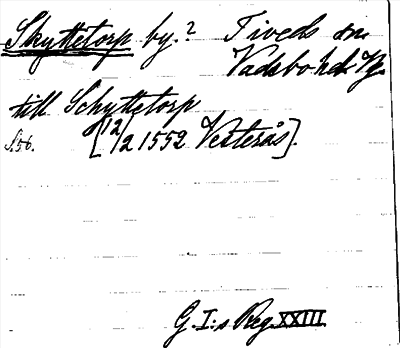 Skyttetorp by.? Tiveds sn.
Vadsbo hd. Vg.
till Schyttetorp
s. 56. [12/2 1552 Vesterås].
G. I:s Reg. XXIII